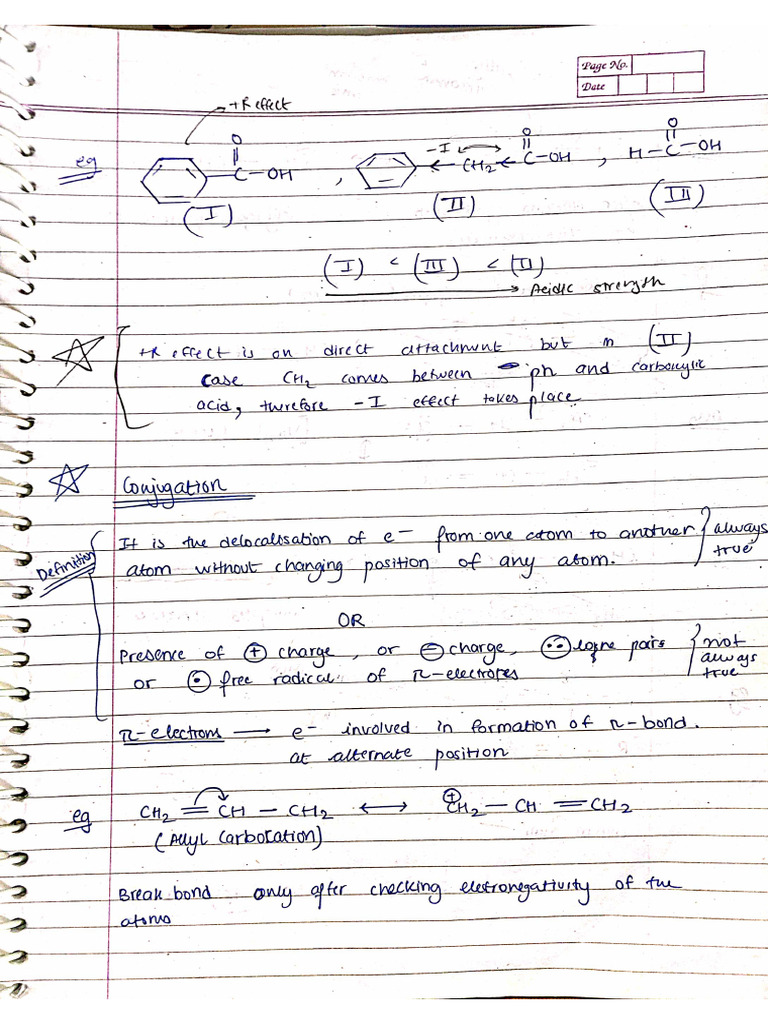 Page No.
Date
+R effect
eg
O
C-OH
(I)
,
-I
CH2
O
C-OH
(II)
,
O
H-C-OH
(III)
(I) < (III) < (II)
Acidic strength
+R effect is on direct attachment but in (II)
case CH2 comes between ph and carboxylic
acid, therefore -I effect takes place
Conjugation
Definition
It is the delocalisation of e- from one atom to another
atom without changing position of any atom.
always
true
OR
Presence of ⊕ charge, or ⊖ charge, lone pairs
or free radical of π-electrones
not
always
true
π-electrons → e- involved in formation of π-bond.
at alternate position
eg
CH2 = CH - CH2 ↔ CH2 - CH = CH2
+
(Allyl Carbocation)
Break bond only after checking eletronegativity of the
atoms